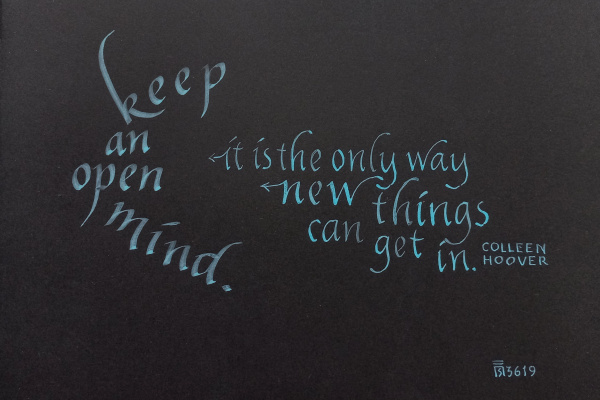 keep
an
open
mind.
it is the only way
new things
can get in.
COLLEEN
HOOVER
3619